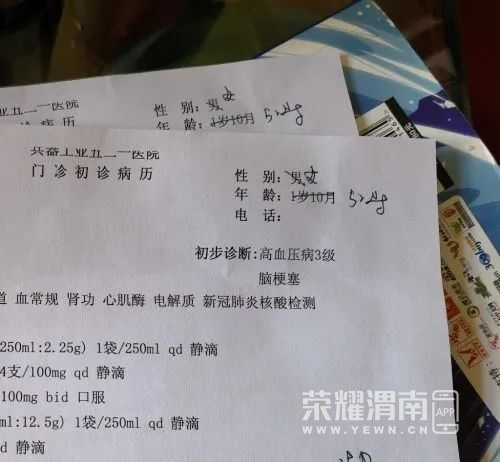 性 别:男女
年 龄:1岁10月 52岁
兵器工业五二一医院
门 诊 初 诊 病 历
性 别:男女
年 龄:1岁10月 52岁
电 话:
初步诊断:高血压病3级
脑梗塞
道 血常规 肾功 心肌酶 电解质 新冠肺炎核酸检测
250ml:2.25g) 1袋/250ml qd 静滴
4支/100mg qd 静滴
100mg bid 口服
ml:12.5g) 1袋/250ml qd 静滴
d 静滴
荣耀渭南 APP
WWW.YEWN.CN